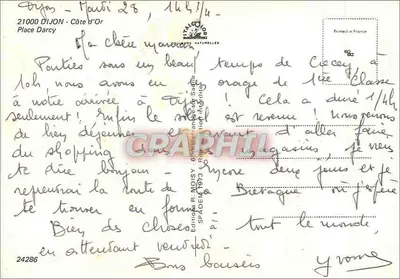 Dijon - Mardi 28, 14h 1/4 -
21000 DIJON - Côte d'Or
Place Darcy
Printed in France
Ma chère maman,
Parties sous un beau temps de Cercey à
10h, nous avons eu un orage de 1ère Classe
à notre arrivée à Dijon ! Cela a duré 1/4h
seulement ! Enfin le soleil est revenu ! Nous venons
de bien déjeuner et avant d'aller faire
du shopping dans les magasins, je viens
te dire bonjour - Encore deux jours et je
reprendrai la route de la Bretagne où j'espère
te trouver en forme
Bien des choses à tout le monde,
en attendant vendredi -
Bons baisers
Yvonne
24286
Editions R. MOISY
SPADEM 1973
CPAPHIL